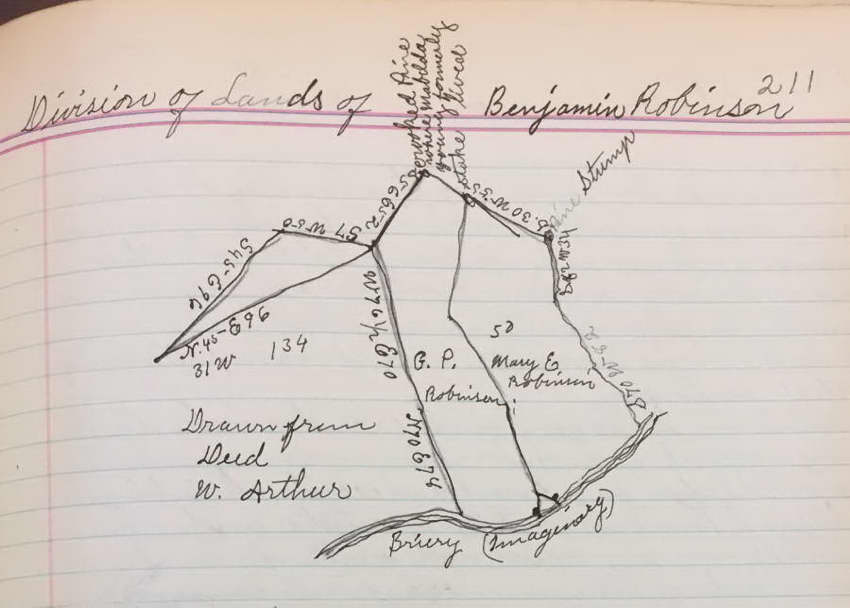 211
Division of Lands of Benjamin Robinson
Crooked Pine
where Matilda
Young formerly
lived
Stake
Pine Stump
S 66 E 2
S 7 W 50
S 45 - E 94
N. 45 - E 96
31 W 134
N 76 1/2 E 70
N 70 E 74
S. 30 W 55
S 70 W
G. P.
Robinson
50
Mary E
Robinson
Drawn from
Deed
W. Arthur
Briery (Imaginary)